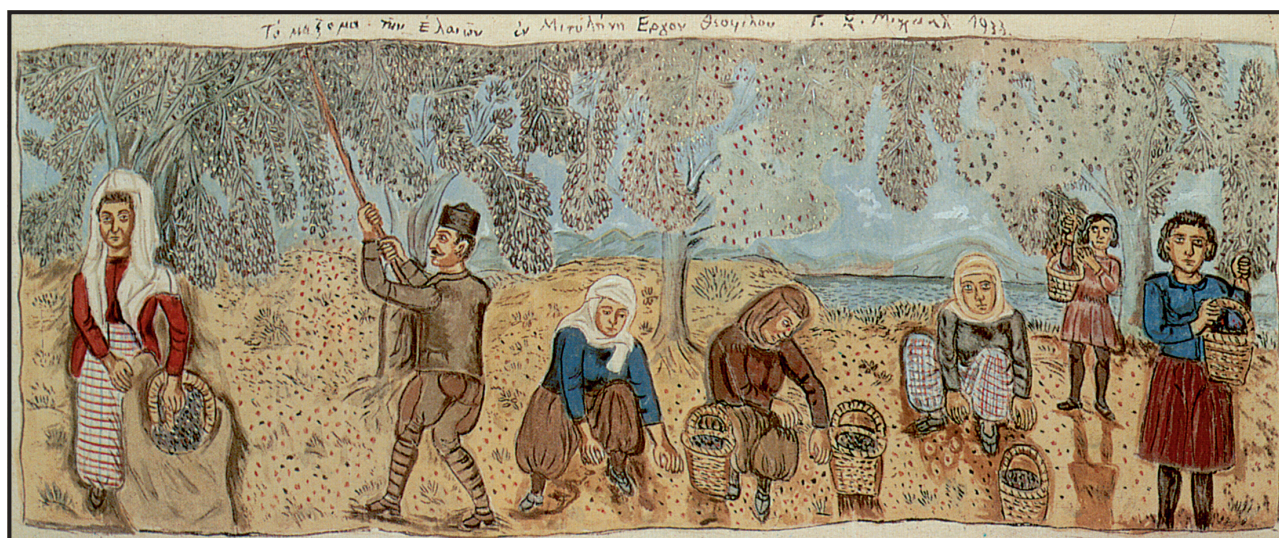 Τό μάζεμα τῶν Ἐλαιῶν ἐν Μιτυλήνῃ Ἔργον Θεοφίλου Γ. Χ. Μιχαήλ 1933.